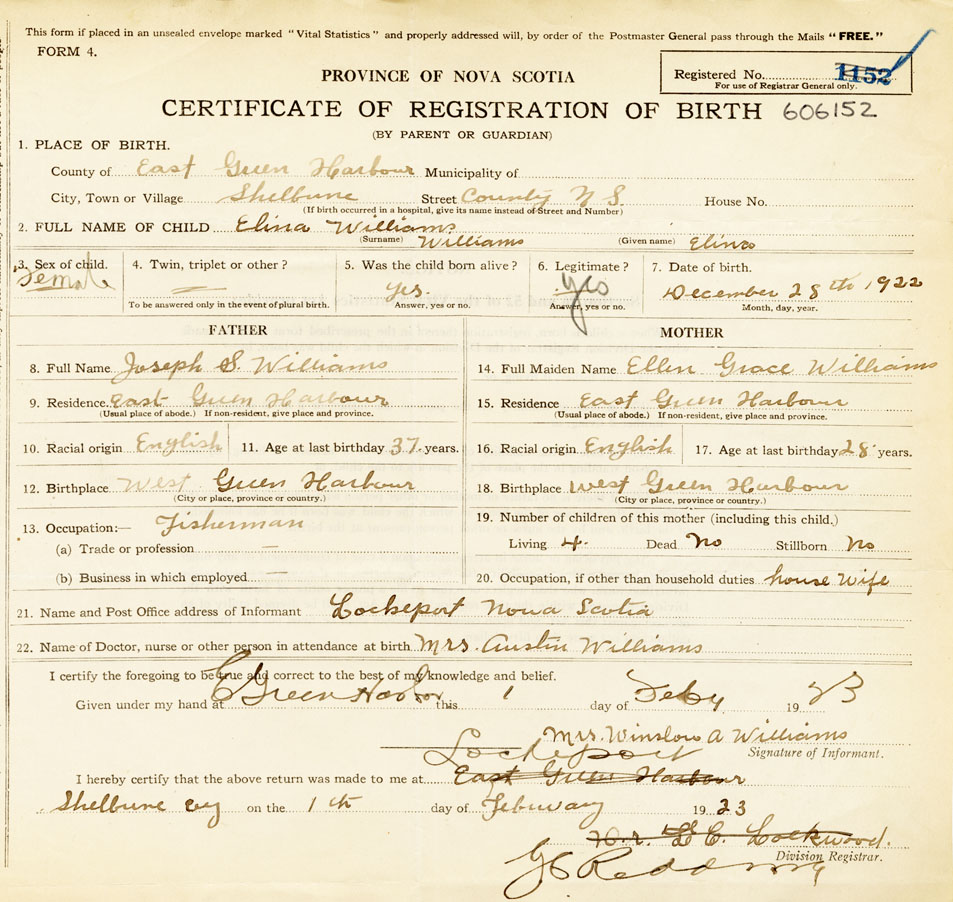 This form if placed in an unsealed envelope marked "Vital Statistics" and properly addressed will, by order of the Postmaster General pass through the Mails "FREE."
FORM 4.
PROVINCE OF NOVA SCOTIA
Registered No. 1152
For use of Registrar General only.
CERTIFICATE OF REGISTRATION OF BIRTH 606152
(BY PARENT OR GUARDIAN)
1. PLACE OF BIRTH.
County of East Green Harbour Municipality of
City, Town or Village Shelburne Street County N S. House No.
(If birth occurred in a hospital, give its name instead of Street and Number)
2. FULL NAME OF CHILD Elina Williams
(Surname) Williams (Given name) Elina
3. Sex of child. 4. Twin, triplet or other? 5. Was the child born alive? 6. Legitimate? 7. Date of birth.
Female — yes. yes December 28th 1922
To be answered only in the event of plural birth. Answer, yes or no. Answer, yes or no. Month, day, year.
FATHER MOTHER
8. Full Name Joseph S. Williams 14. Full Maiden Name Ellen Grace Williams
9. Residence East Green Harbour 15. Residence East Green Harbour
(Usual place of abode.) If non-resident, give place and province. (Usual place of abode.) If non-resident, give place and province.
10. Racial origin English 11. Age at last birthday 37 years. 16. Racial origin English 17. Age at last birthday 28 years.
12. Birthplace West Green Harbour 18. Birthplace West Green Harbour
(City or place, province or country.) (City or place, province or country.)
13. Occupation:— Fisherman 19. Number of children of this mother (including this child.)
(a) Trade or profession — Living 4. Dead No Stillborn No
(b) Business in which employed — 20. Occupation, if other than household duties house Wife
21. Name and Post Office address of Informant Lockeport Nova Scotia
22. Name of Doctor, nurse or other person in attendance at birth Mrs. Austin Williams
I certify the foregoing to be true and correct to the best of my knowledge and belief.
Given under my hand at E Green Harbor this 1 day of Feby 1923
Mrs. Winslow A Williams
Lockeport Signature of Informant.
I hereby certify that the above return was made to me at East Green Harbour
Shelburne on the 1th day of February 1923
Lockwood.
Division Registrar.